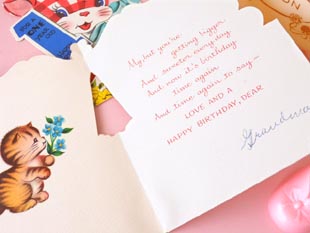 My, but you're
getting bigger
And sweeter every day
And now it's birthday
time again
And time again to say—
LOVE AND A
HAPPY BIRTHDAY, DEAR
Grandma
ONE
YEAR
OLD